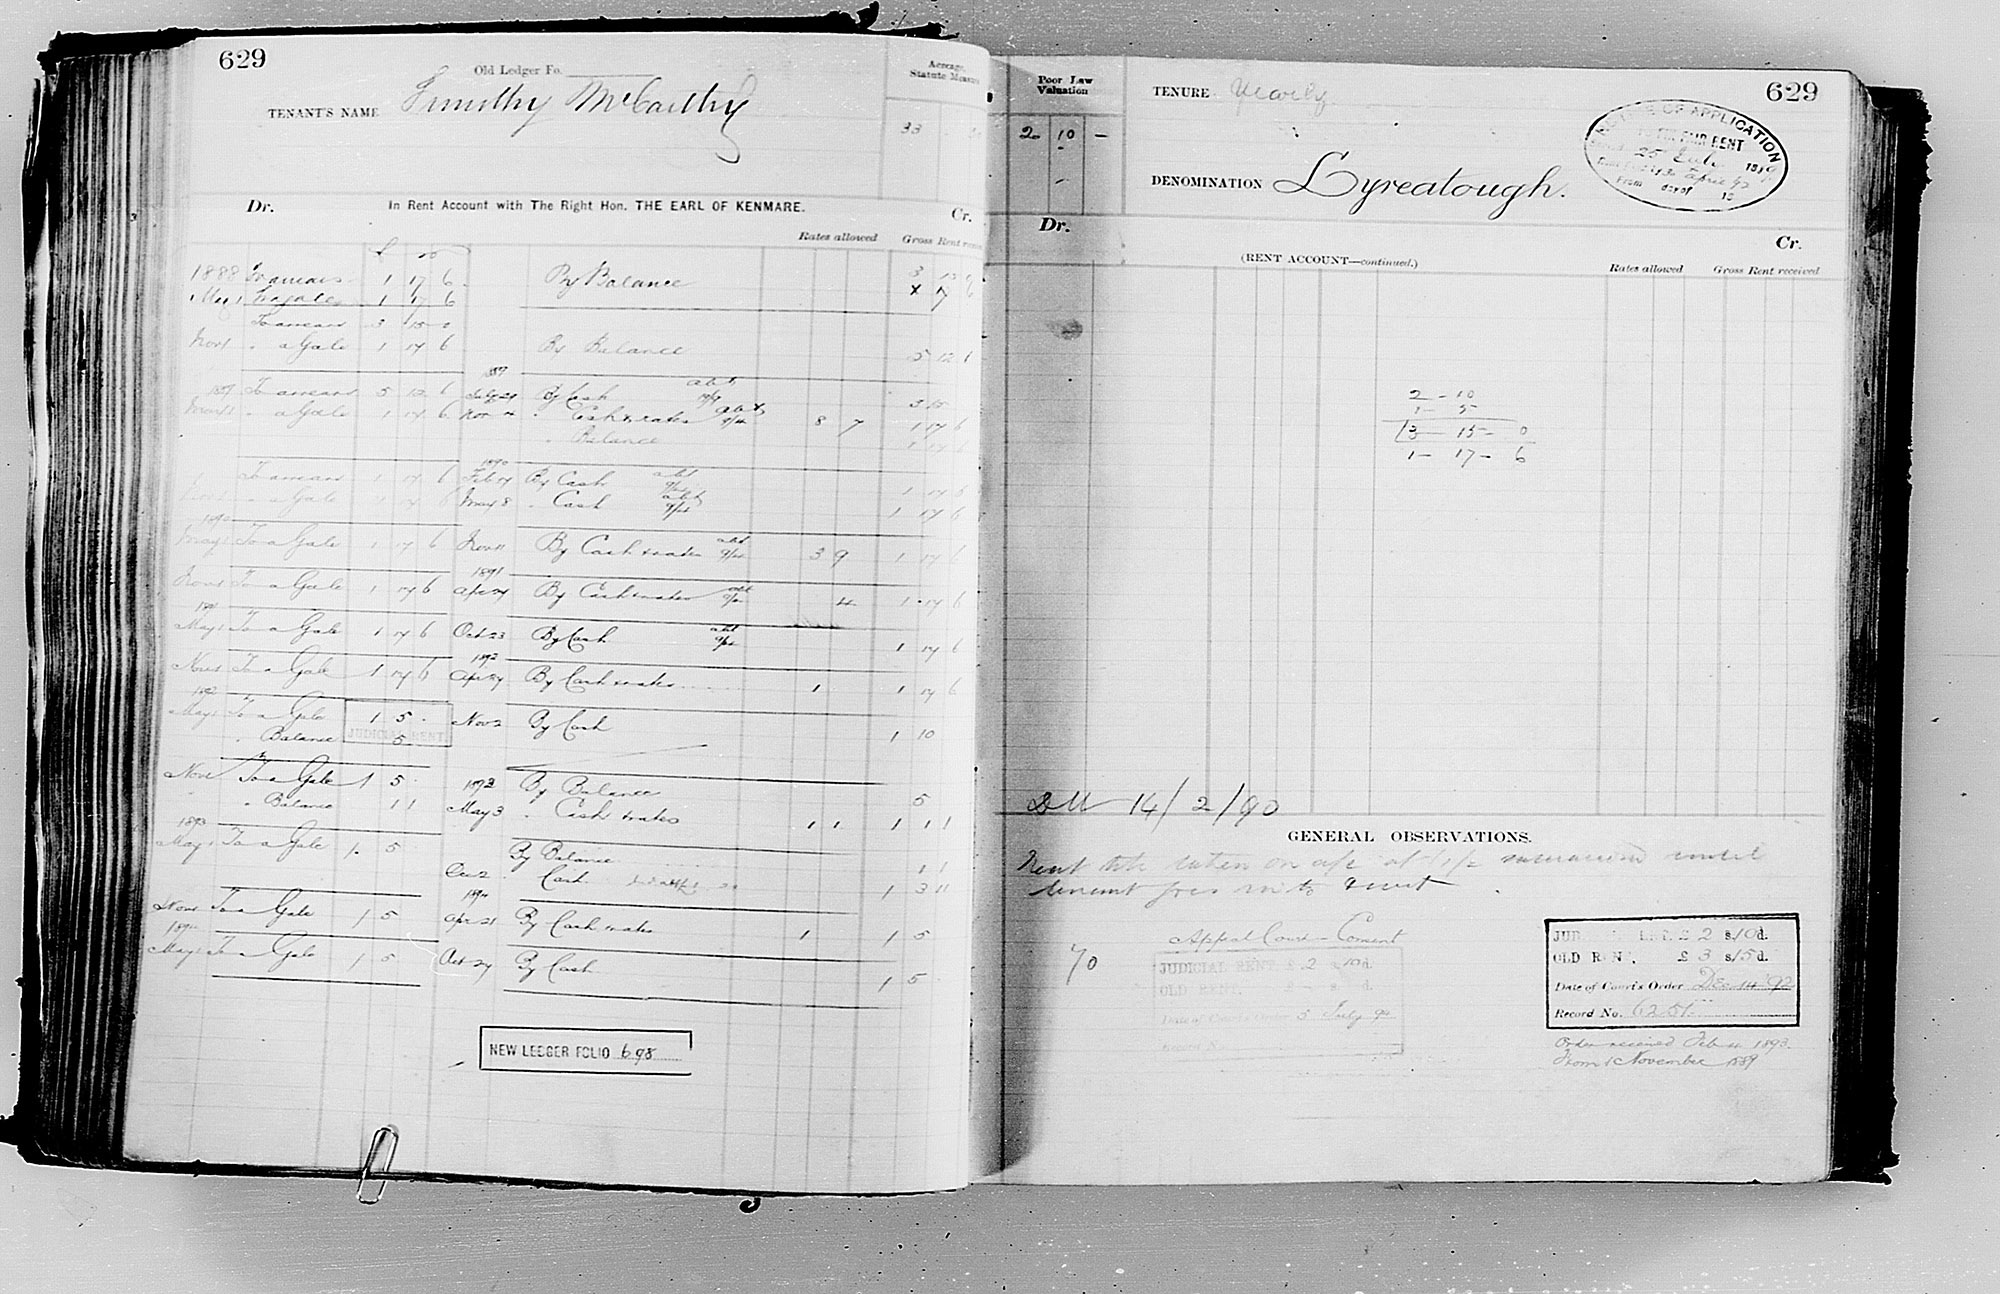 629
Old Ledger Fo.
TENANT'S NAME Timothy McCarthy
Acreage
Statute Measure
33
Dr. In Rent Account with The Right Hon. THE EARL OF KENMARE. Cr.
Rates allowed Gross Rent
1888 To arrears 1 17 6 By Balance 3 15
May 1 " a gale 1 17 6
To arrears 3 15 0
Nov 1 " a Gale 1 17 6 By Balance 5 12 6
1889 To arrears 5 12 6 July 29 By Cash abt 3 15
May 1 " a Gale 1 17 6 Nov 4 " Cash & rates abt 8 7 1 17 6
" Balance 1 17 6
1890
To arrears 1 17 6 Feb 14 By Cash abt 1 17 6
" a Gale 1 17 6 May 8 " Cash abt 1 17 6
1890
May 1 To a Gale 1 17 6 Nov 11 By Cash & rates abt 3 9 1 17 6
1891
Nov 1 To a Gale 1 17 6 Apr 24 By Cash & rates abt 4 1 17 6
1891
May 1 To a Gale 1 17 6 Oct 23 By Cash abt 1 17 6
1892
Nov 1 To a Gale 1 17 6 Apr 27 By Cash & rates 1 1 17 6
1892
May 1 To a Gale 1 5 Nov 2 By Cash 1 10
" Balance 5
JUDICIAL RENT
Nov 1 To a Gale 1 5 1893 By Balance 5
" Balance 1 1 May 3 " Cash & rates 1 1 1 1 1
1893
May 1 To a Gale 1 5 By Balance 1 1
Dec 2 Cash 1 3 11
1894
Nov 1 To a Gale 1 5 Apr 21 By Cash & rates 1 1 5
1894
May 1 To a Gale 1 5 Oct 27 By Cash 1 5
NEW LEDGER FOLIO 698
Poor Law
Valuation
2 10 —
TENURE Yearly
629
NOTICE OF APPLICATION
TO FIX FAIR RENT
25 July
April 92
From day of 18
DENOMINATION Lyreatough.
Dr. Cr.
(RENT ACCOUNT—continued.)
Rates allowed Gross Rent received
2 - 10
1 - 5
3 - 15 - 0
1 - 17 - 6
14/2/90
GENERAL OBSERVATIONS.
Rent to be taken on a/c of until
tenant goes into Court
70
Appeal Court - Consent
JUDICIAL RENT £ 2 s. 10 d.
OLD RENT. £ — s. d.
Date of Court's Order 5 July 90
Record No.
JUDICIAL RENT. £ 2 s/10 d.
OLD RENT. £ 3 s/15 d.
Date of Court's Order Dec 14 '92
Record No. 6251
Order received Feb 1893.
From 1 November 1889